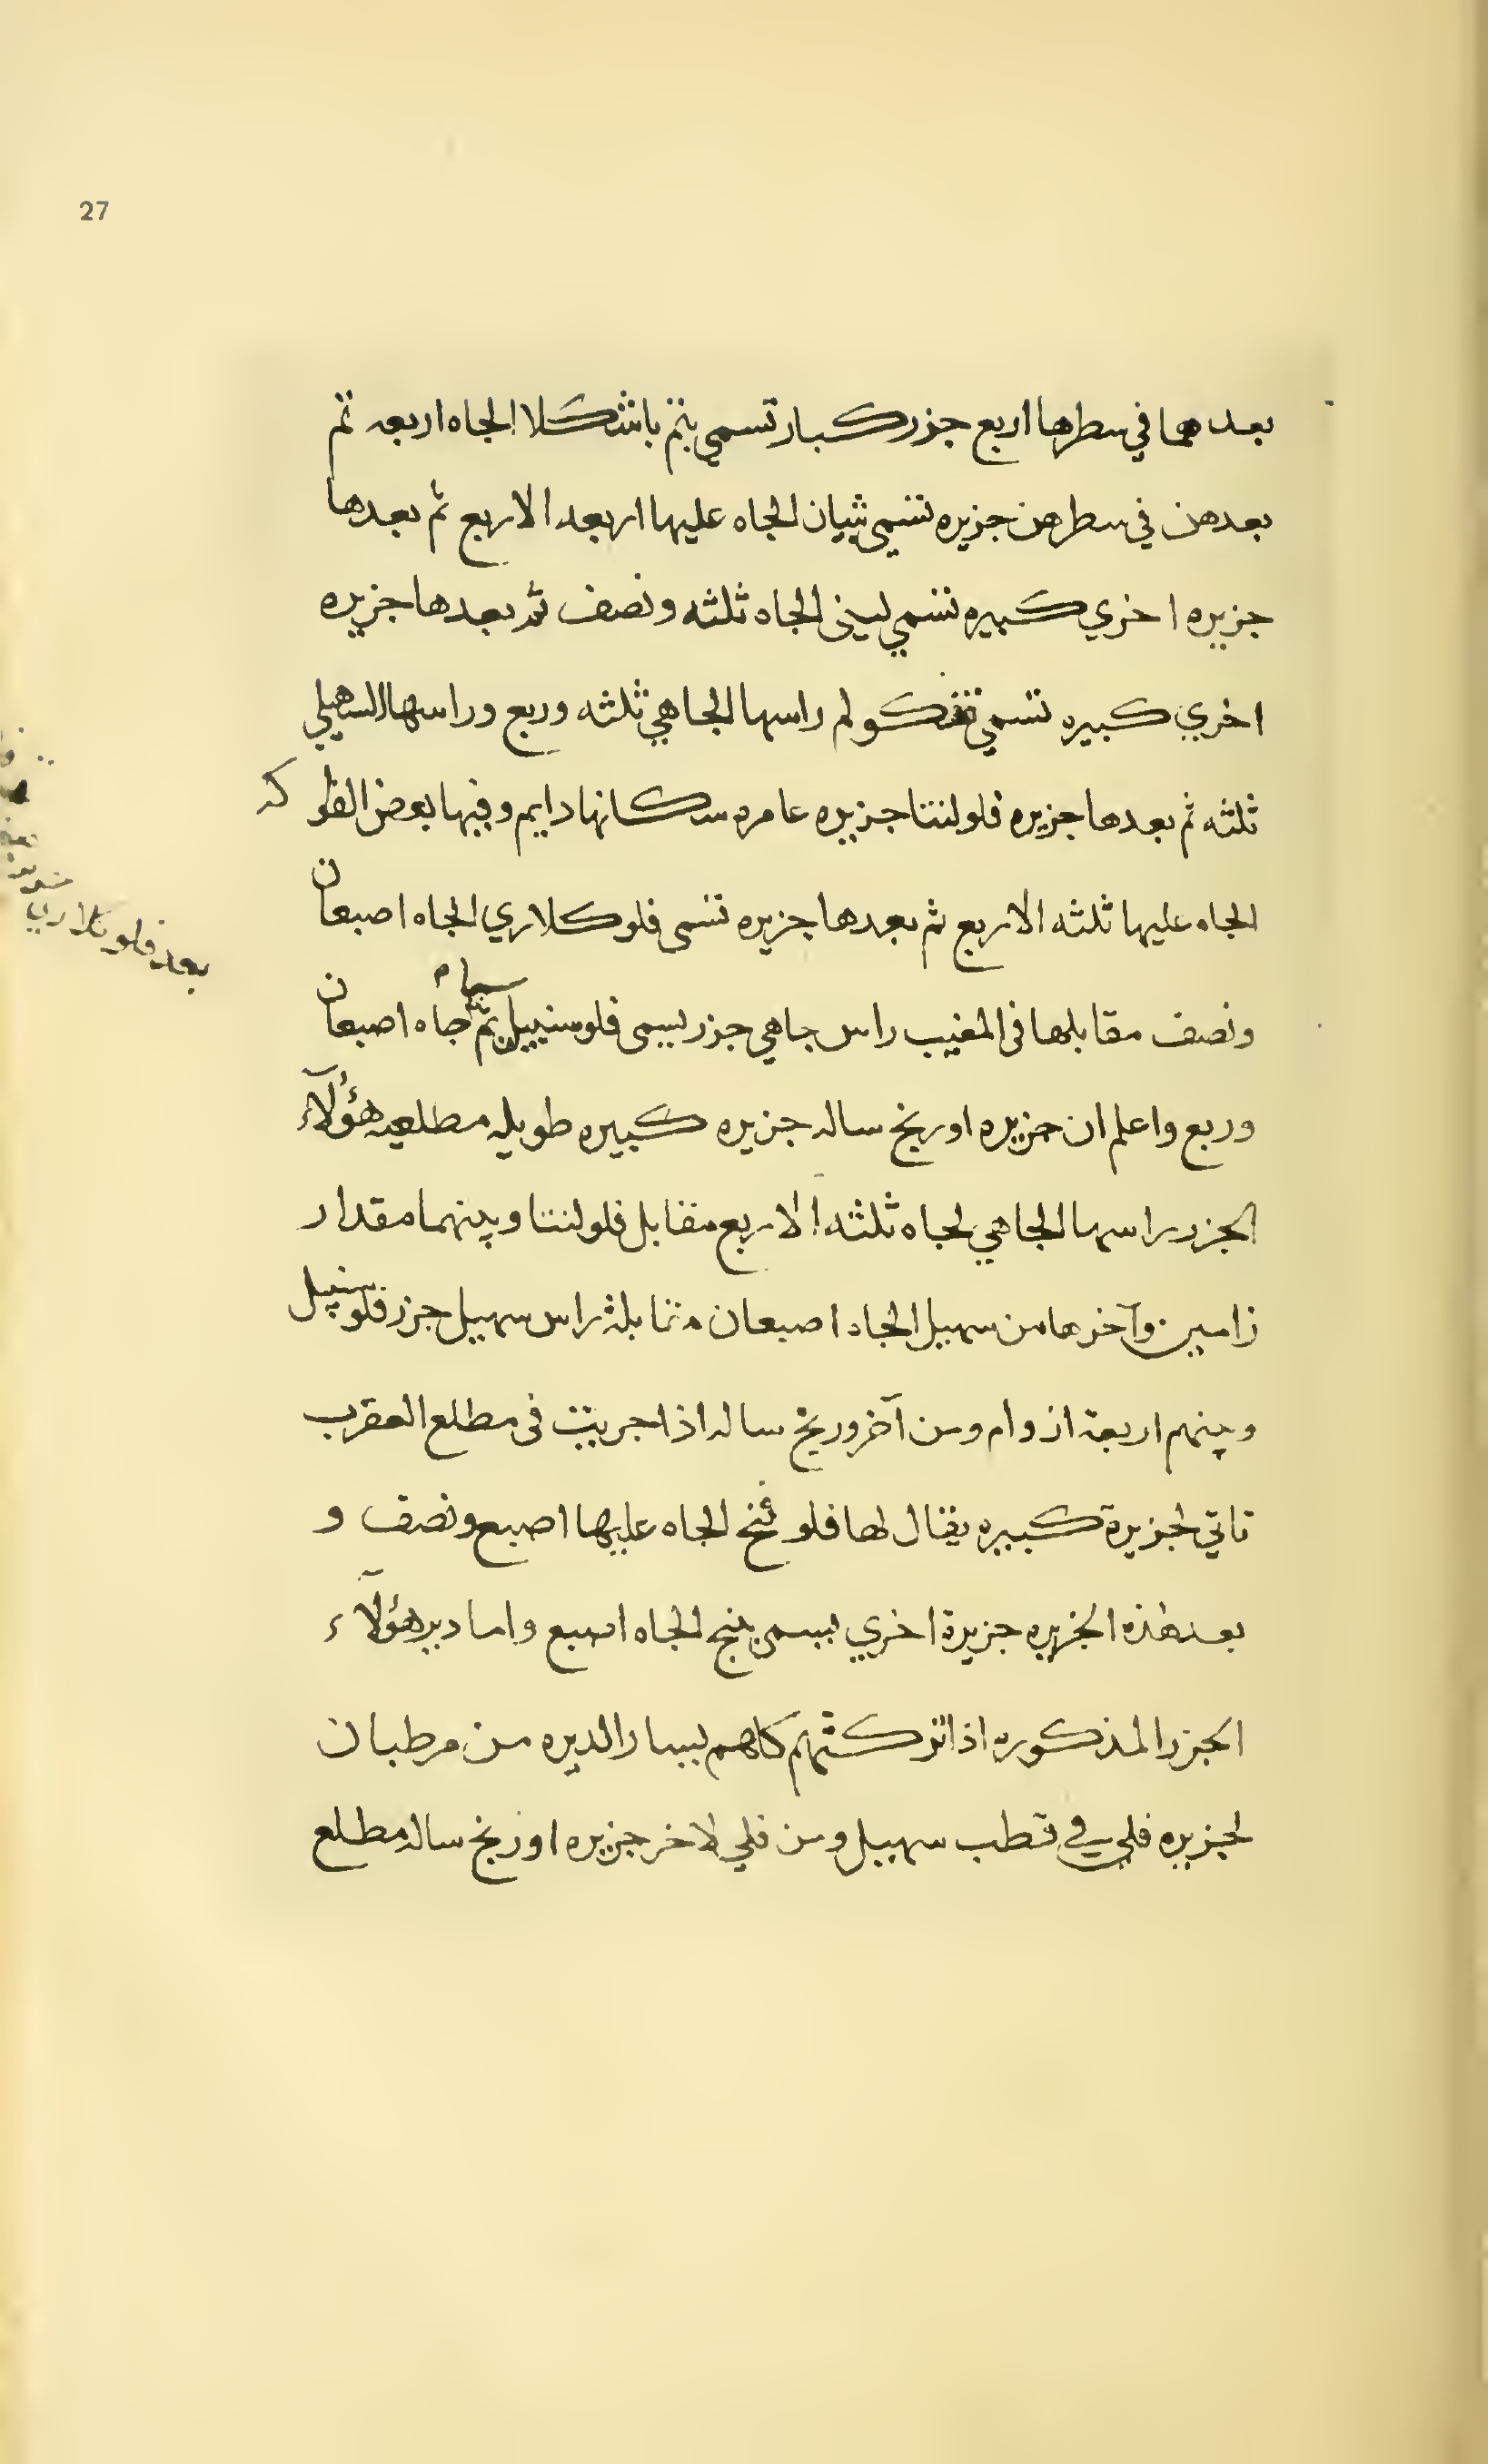 27
بعدهما في سطرها اربع جزر كبار تسمي بتم باشكلا الجاه اربعه ثم
بعدهن في سطرهن جزيره تسمي شيان الجاه عليها اربعه الا ربع ثم بعدها
جزيره اخري كبيره تسمي لبني الجاه ثلثه ونصف ثم بعدها جزيره
اخري كبيره تسمي راسها الجاهي ثلثه وربع وراسها السهيلي
ثلثه ثم بعدها جزيره فلولنتا جزيره عامره سكانها دايم وفيها بعض الفواكه
الجاه عليها ثلثه الا ربع ثم بعدها جزيره تسمى فلوكلاري الجاه اصبعان
ونصف مقابلها فى المغيب راس جاهي جزر يسمى فلوسنبيل جاه اصبعان
وربع واعلم ان جزيره اورنج ساله جزيره كبيره طويله مطلعيه هؤلآء
الجزر راسها الجاهي لجاه ثلثه الا ربع مقابل فلولنتا وبينهما مقدار
زامين وآخرها من سهيل الجاه اصبعان مقابلة راس سهيل جزر فلوسنبيل
وبينهم اربعة ازوام ومن آخر ورنج ساله اذا جريت فى مطلع العقرب
تاتي لجزيرة كبيره يقال لها فلو فنج الجاه عليها اصبع ونصف و
بعد هذه الجزيره جزيرة اخري يسمى بنج الجاه اصبع واما دير هؤلآء
الجزر المذكوره اذا تركتهم كلهم بيسار الديره من مرطبان
لجزيره فلي في قطب سهيل ومن فلي لاخر جزيره اورنج ساله مطلع
بعد فلو كلاري